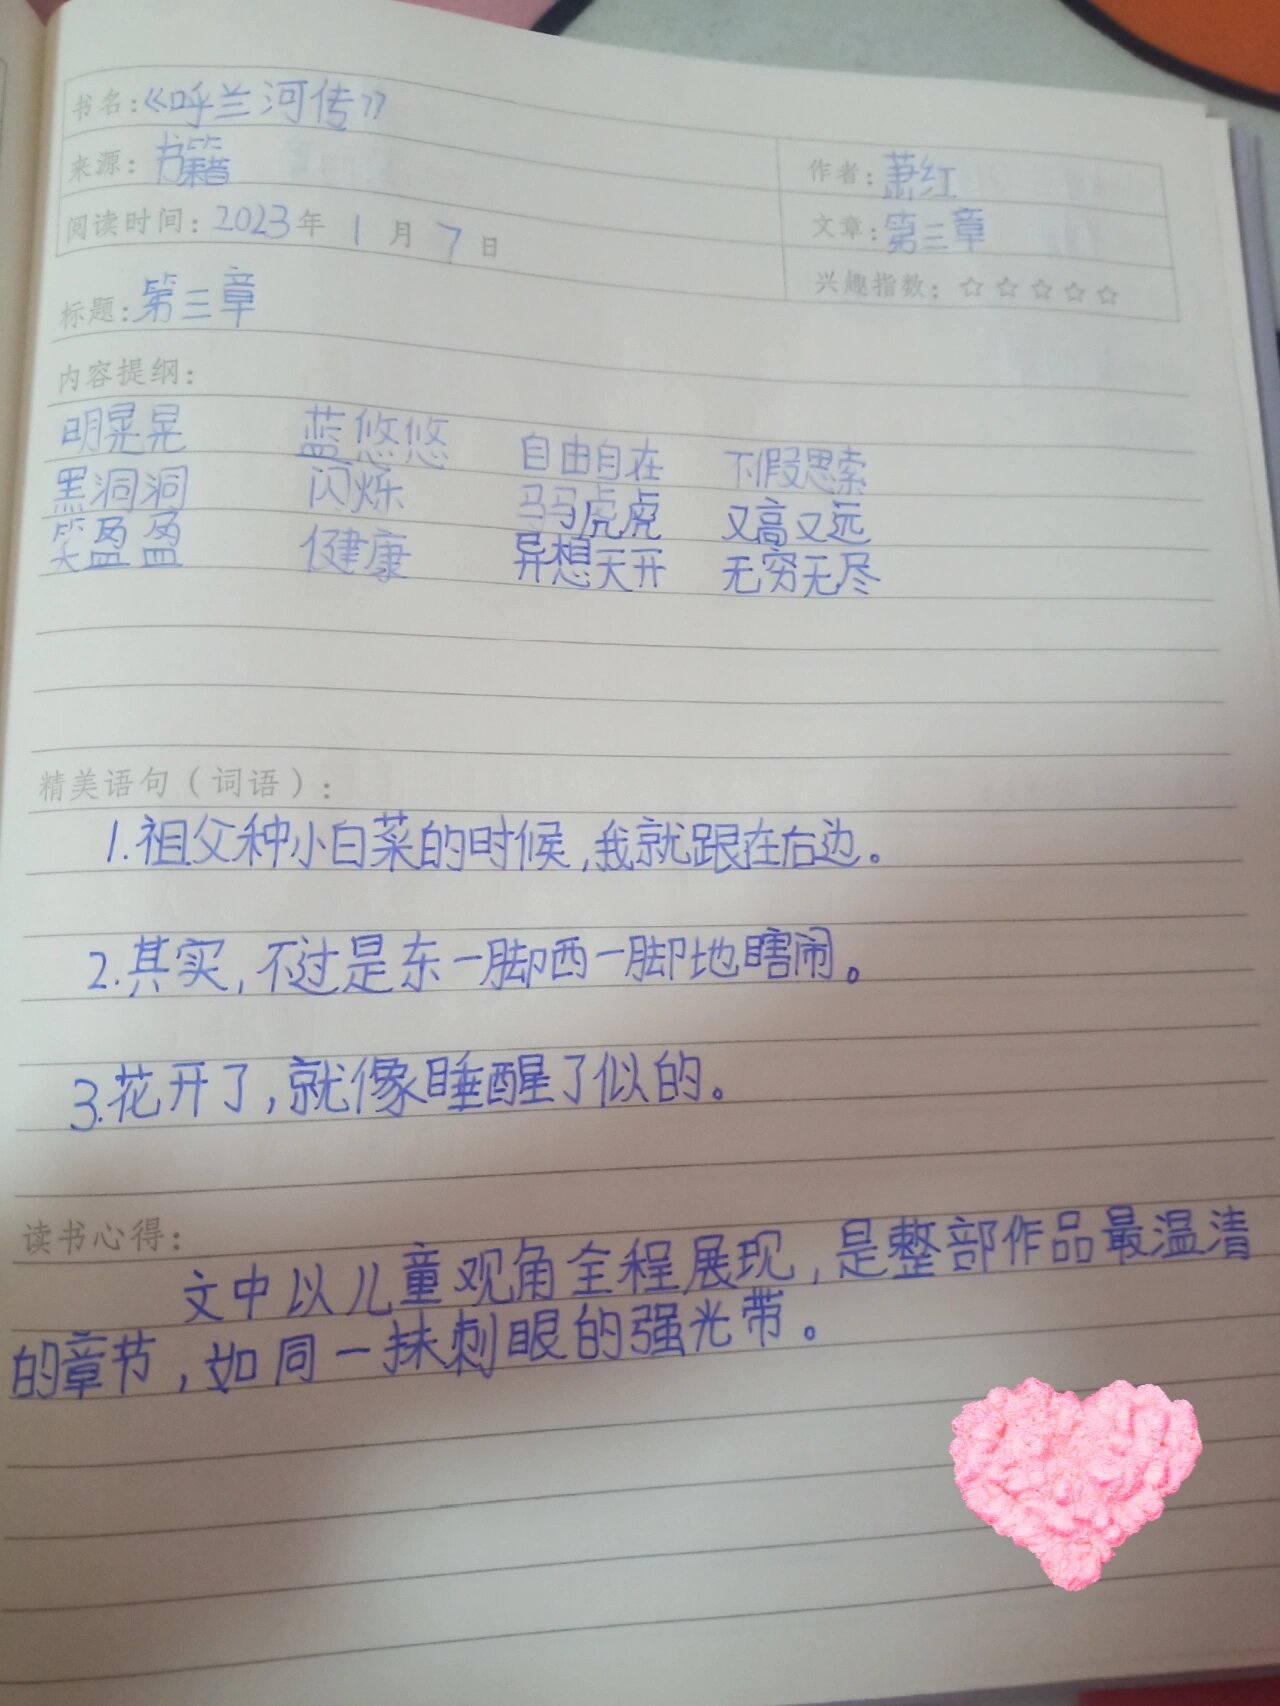 书名:《呼兰河传》
来源: 书籍
作者: 萧红
阅读时间: 2023年 1月 7日
文章: 第三章
兴趣指数: ☆☆☆☆☆
标题: 第三章
内容提纲:
明晃晃 蓝悠悠 自由自在 不假思索
黑洞洞 闪烁 马马虎虎 又高又远
笑盈盈 健康 异想天开 无穷无尽
精美语句（词语）:
1.祖父种小白菜的时候,我就跟在右边。
2.其实,不过是东一脚西一脚地瞎闹。
3.花开了,就像睡醒了似的。
读书心得:
文中以儿童观角全程展现,是整部作品最温清
的章节,如同一抹刺眼的强光带。